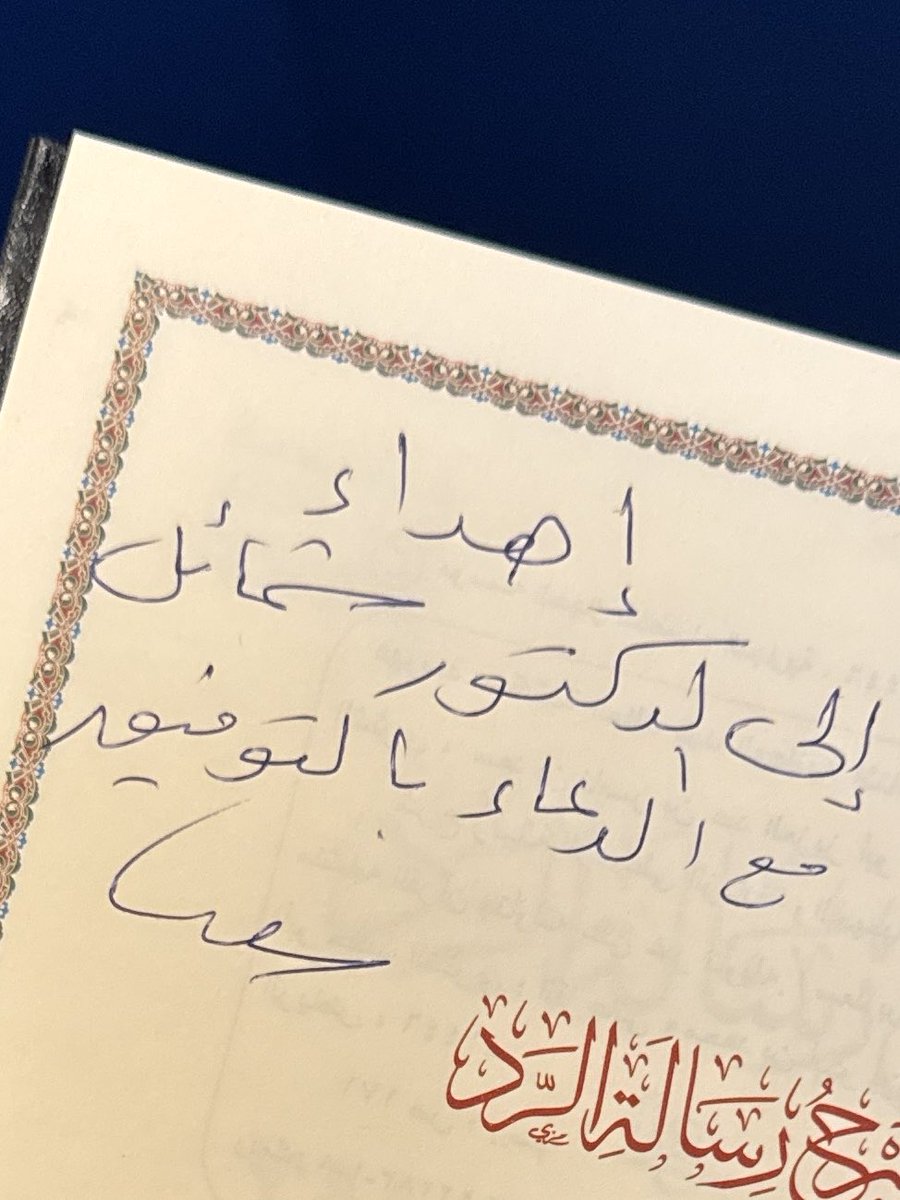 إهداء
إلى الدكتور شمائل
مع الدعاء بالتوفيق
شرح رسالة الرد